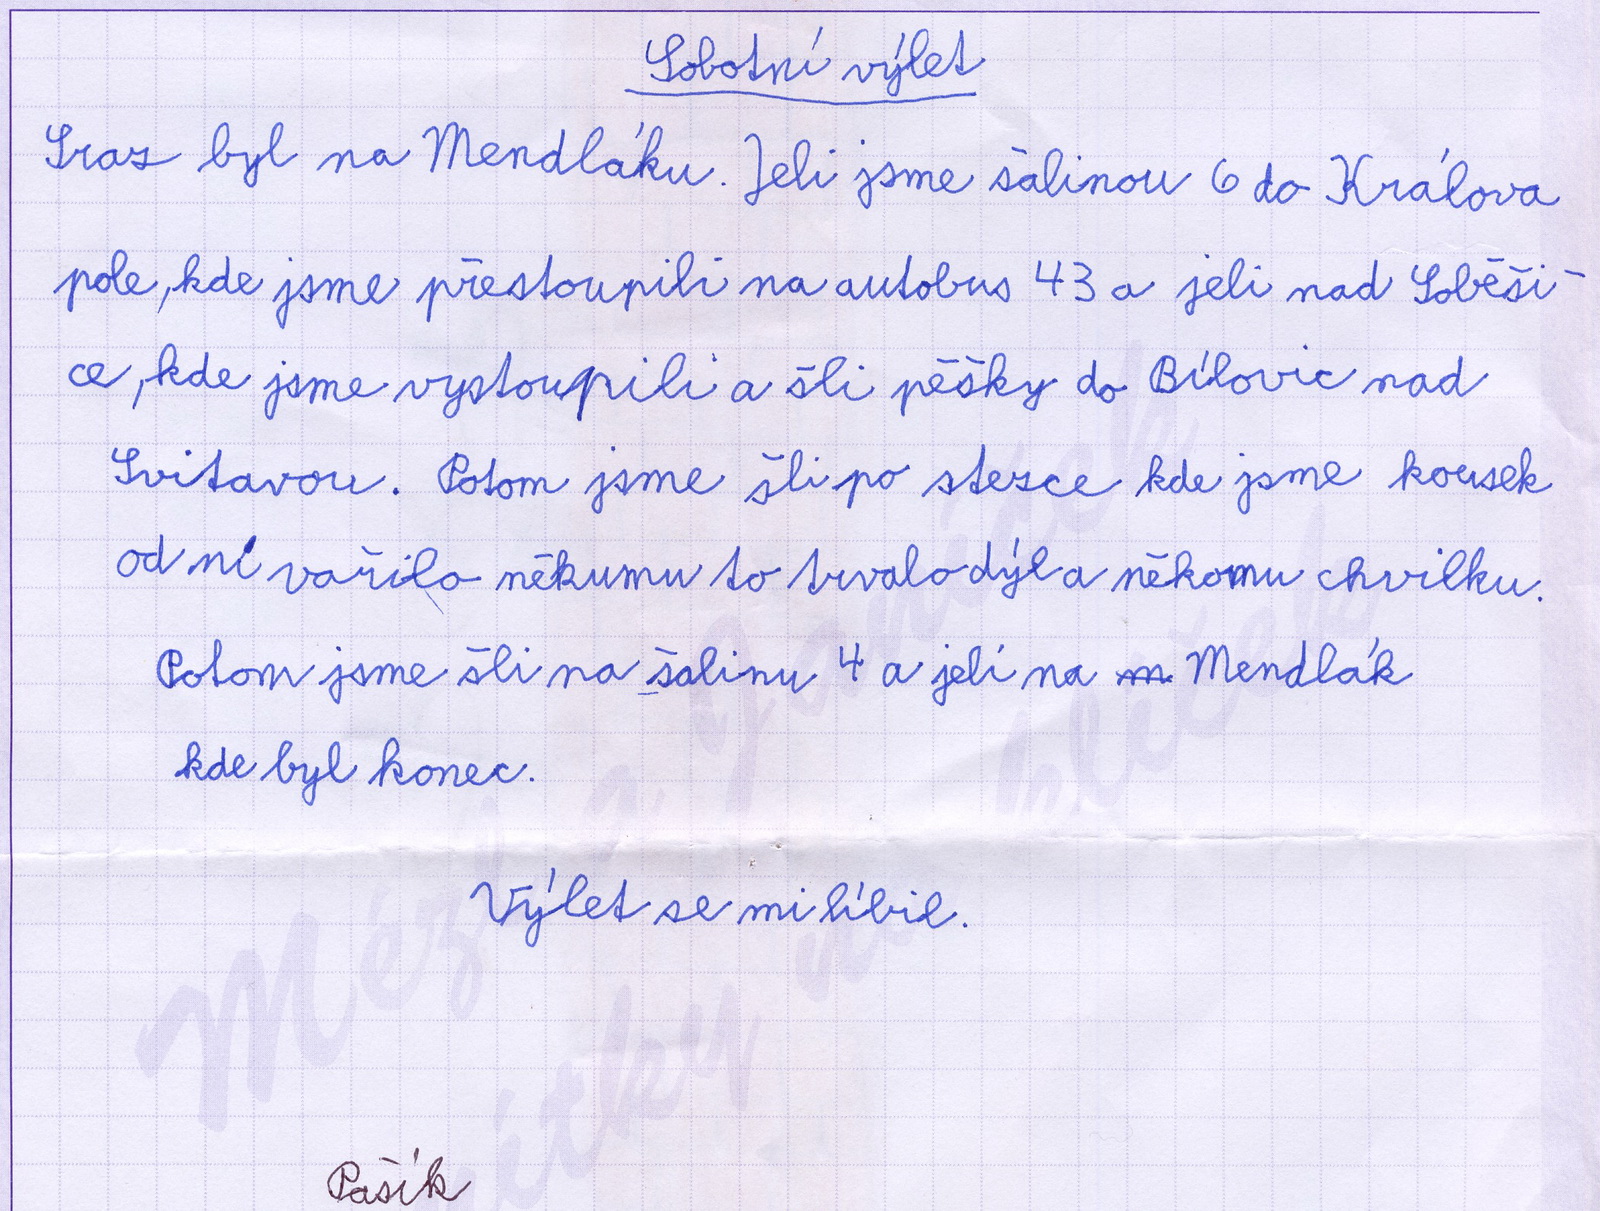 Sobotní výlet
Sraz byl na Mendláku. Jeli jsme šalinou 6 do Králova
pole, kde jsme přestoupili na autobus 43 a jeli nad Soběši-
ce, kde jsme vystoupili a šli pěšky do Bílovic nad
Svitavou. Potom jsme šli po stezce kde jsme kousek
od ní vařilo někumu to trvalo dýl a někomu chvilku.
Potom jsme šli na šalinu 4 a jelí na m Mendlák
kde byl konec.
Výlet se mi líbil.
Pašík